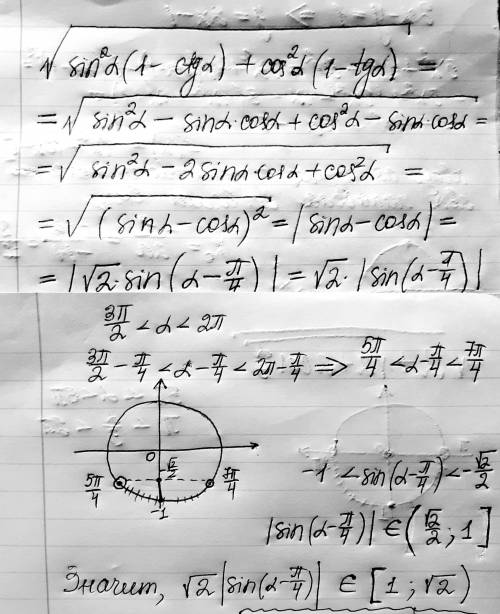 √(sin²α(1 - ctgα) + cos²α(1 - tgα)) =
= √(sin²α - sinα·cosα + cos²α - sinα·cosα) =
= √(sin²α - 2sinα·cosα + cos²α) =
= √((sinα - cosα)²) = |sinα - cosα| =
= |√2·sin(α - π/4)| = √2·|sin(α - π/4)|
3π/2 < α < 2π
3π/2 - π/4 < α - π/4 < 2π - π/4 ⟹ 5π/4 < α - π/4 < 7π/4
0
5π/4 √2/2 7π/4
-1
-1 < sin(α - π/4) < -√2/2
|sin(α - π/4)| ∈ (√2/2; 1]
Значит, √2|sin(α - π/4)| ∈ [1; √2)